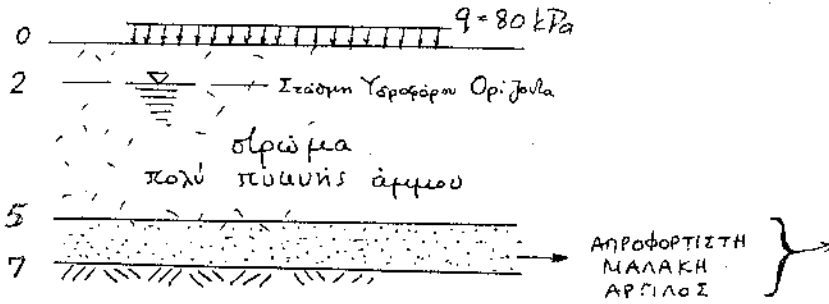 q = 80 kPa
0
2
Στάθμη Υδροφόρου Ορίζοντα
στρώμα
πολύ πυκνής άμμου
5
7
ΑΠΡΟΦΟΡΤΙΣΤΗ
ΜΑΛΑΚΗ
ΑΡΓΙΛΟΣ